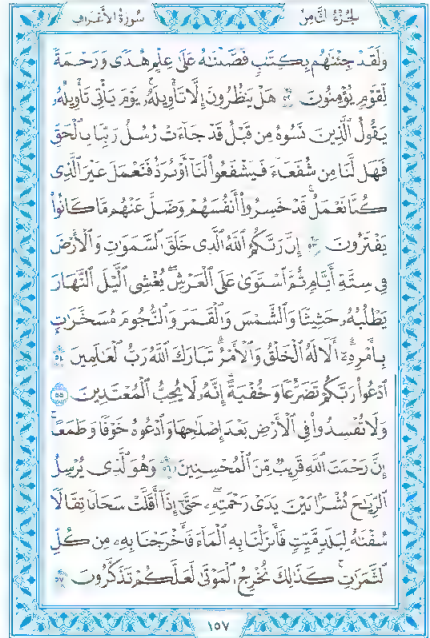 الجزء الثامن سورة الأعراف
وَلَقَدْ جِئْنَٰهُم بِكِتَٰبٍ فَصَّلْنَٰهُ عَلَىٰ عِلْمٍ هُدًى وَرَحْمَةً
لِّقَوْمٍ يُؤْمِنُونَ ٥٢ هَلْ يَنظُرُونَ إِلَّا تَأْوِيلَهُۥ يَوْمَ يَأْتِى تَأْوِيلُهُۥ
يَقُولُ ٱلَّذِينَ نَسُوهُ مِن قَبْلُ قَدْ جَآءَتْ رُسُلُ رَبِّنَا بِٱلْحَقِّ
فَهَل لَّنَا مِن شُفَعَآءَ فَيَشْفَعُوا۟ لَنَآ أَوْ نُرَدُّ فَنَعْمَلَ غَيْرَ ٱلَّذِى
كُنَّا نَعْمَلُ قَدْ خَسِرُوٓا۟ أَنفُسَهُمْ وَضَلَّ عَنْهُم مَّا كَانُوا۟
يَفْتَرُونَ ٥٣ إِنَّ رَبَّكُمُ ٱللَّهُ ٱلَّذِى خَلَقَ ٱلسَّمَٰوَٰتِ وَٱلْأَرْضَ
فِى سِتَّةِ أَيَّامٍ ثُمَّ ٱسْتَوَىٰ عَلَى ٱلْعَرْشِ يُغْشِى ٱلَّيْلَ ٱلنَّهَارَ
يَطْلُبُهُۥ حَثِيثًا وَٱلشَّمْسَ وَٱلْقَمَرَ وَٱلنُّجُومَ مُسَخَّرَٰتٍۭ
بِأَمْرِهِۦٓ أَلَا لَهُ ٱلْخَلْقُ وَٱلْأَمْرُ تَبَارَكَ ٱللَّهُ رَبُّ ٱلْعَٰلَمِينَ ٥٤
ٱدْعُوا۟ رَبَّكُمْ تَضَرُّعًا وَخُفْيَةً إِنَّهُۥ لَا يُحِبُّ ٱلْمُعْتَدِينَ ٥٥
وَلَا تُفْسِدُوا۟ فِى ٱلْأَرْضِ بَعْدَ إِصْلَٰحِهَا وَٱدْعُوهُ خَوْفًا وَطَمَعًا
إِنَّ رَحْمَتَ ٱللَّهِ قَرِيبٌ مِّنَ ٱلْمُحْسِنِينَ ٥٦ وَهُوَ ٱلَّذِى يُرْسِلُ
ٱلرِّيَٰحَ بُشْرًۢا بَيْنَ يَدَىْ رَحْمَتِهِۦ حَتَّىٰٓ إِذَآ أَقَلَّتْ سَحَابًا ثِقَالًا
سُقْنَٰهُ لِبَلَدٍ مَّيِّتٍ فَأَنزَلْنَا بِهِ ٱلْمَآءَ فَأَخْرَجْنَا بِهِۦ مِن كُلِّ
ٱلثَّمَرَٰتِ كَذَٰلِكَ نُخْرِجُ ٱلْمَوْتَىٰ لَعَلَّكُمْ تَذَكَّرُونَ ٥٧
١٥٧